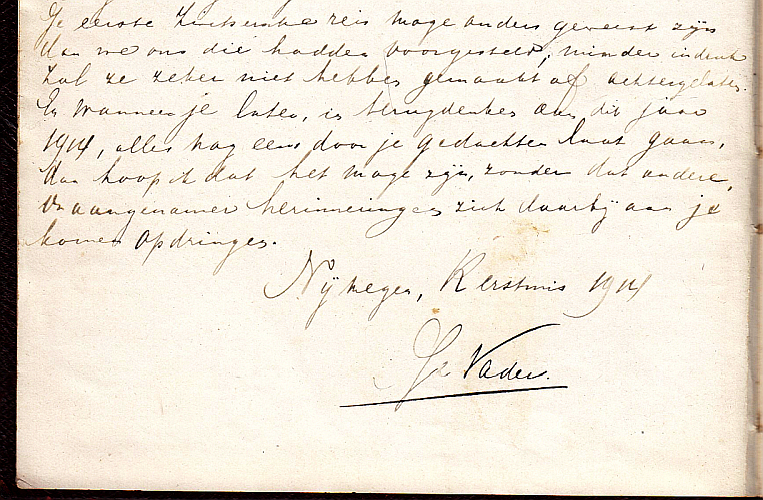 Je eerste Zwitsersche reis moge anders geweest zijn
dan we ons die hadden voorgesteld, minder indruk
zal ze zeker niet hebben gemaakt of achtergelaten.
En wanneer je later, in terugdenken aan dit jaar
1914, alles nog eens door je gedachten laat gaan,
dan hoop ik dat het moge zijn, zonder dat andere,
onaangenamer herinneringen zich daarbij aan je
komen opdringen.
Nijmegen, Kerstmis 1914
Je Vader.